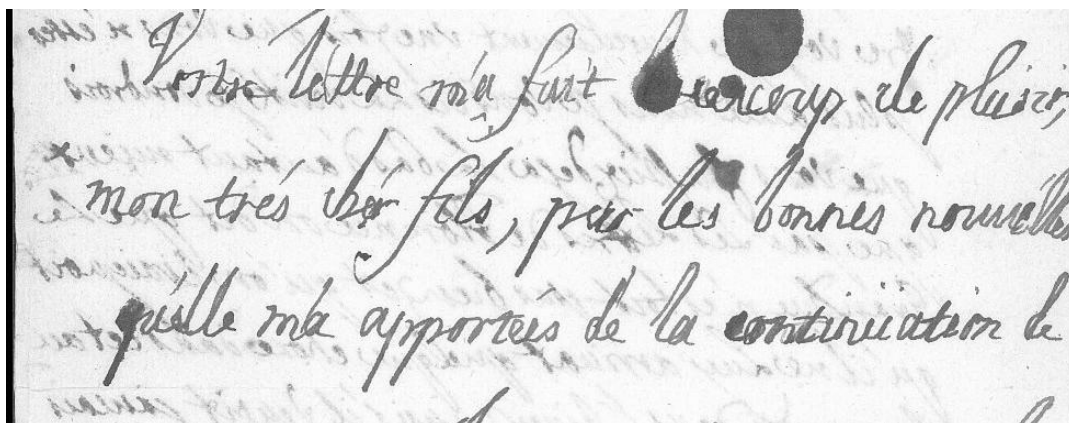 Vostre lettre m'a fait beaucoup de plaisir,
mon trés cher fils, par les bonnes nouuelles
qu'elle m'a apportées de la continüation de